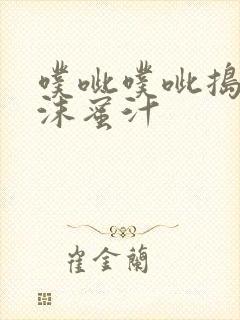 噗呲噗呲搗
沫蜜汁
崔金蘭